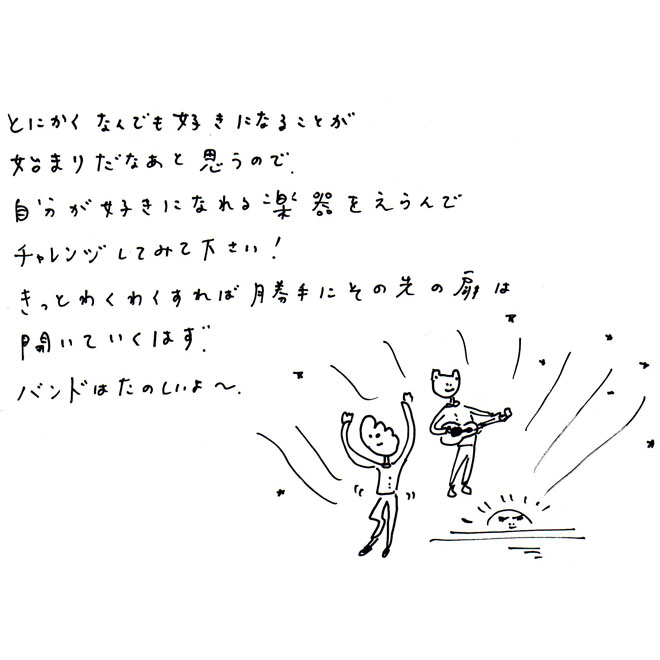 とにかくなんでも好きになることが
始まりだなあと思うので、
自分が好きになれる楽器をえらんで
チャレンジしてみて下さい!
きっとわくわくすれば月勝手にその先の扉は
開いていくはず。
バンドはたのしいよ〜。